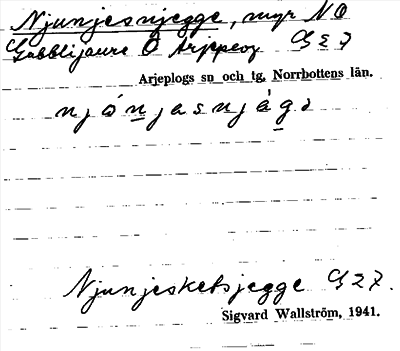 Njunjesnjegge, myr NO
Gubblijaure O Arjepeog G 27
Arjeplogs sn och tg, Norrbottens län.
njónjasnjàgɔ
Njunjesketsjegge G 27.
Sigvard Wallström, 1941.